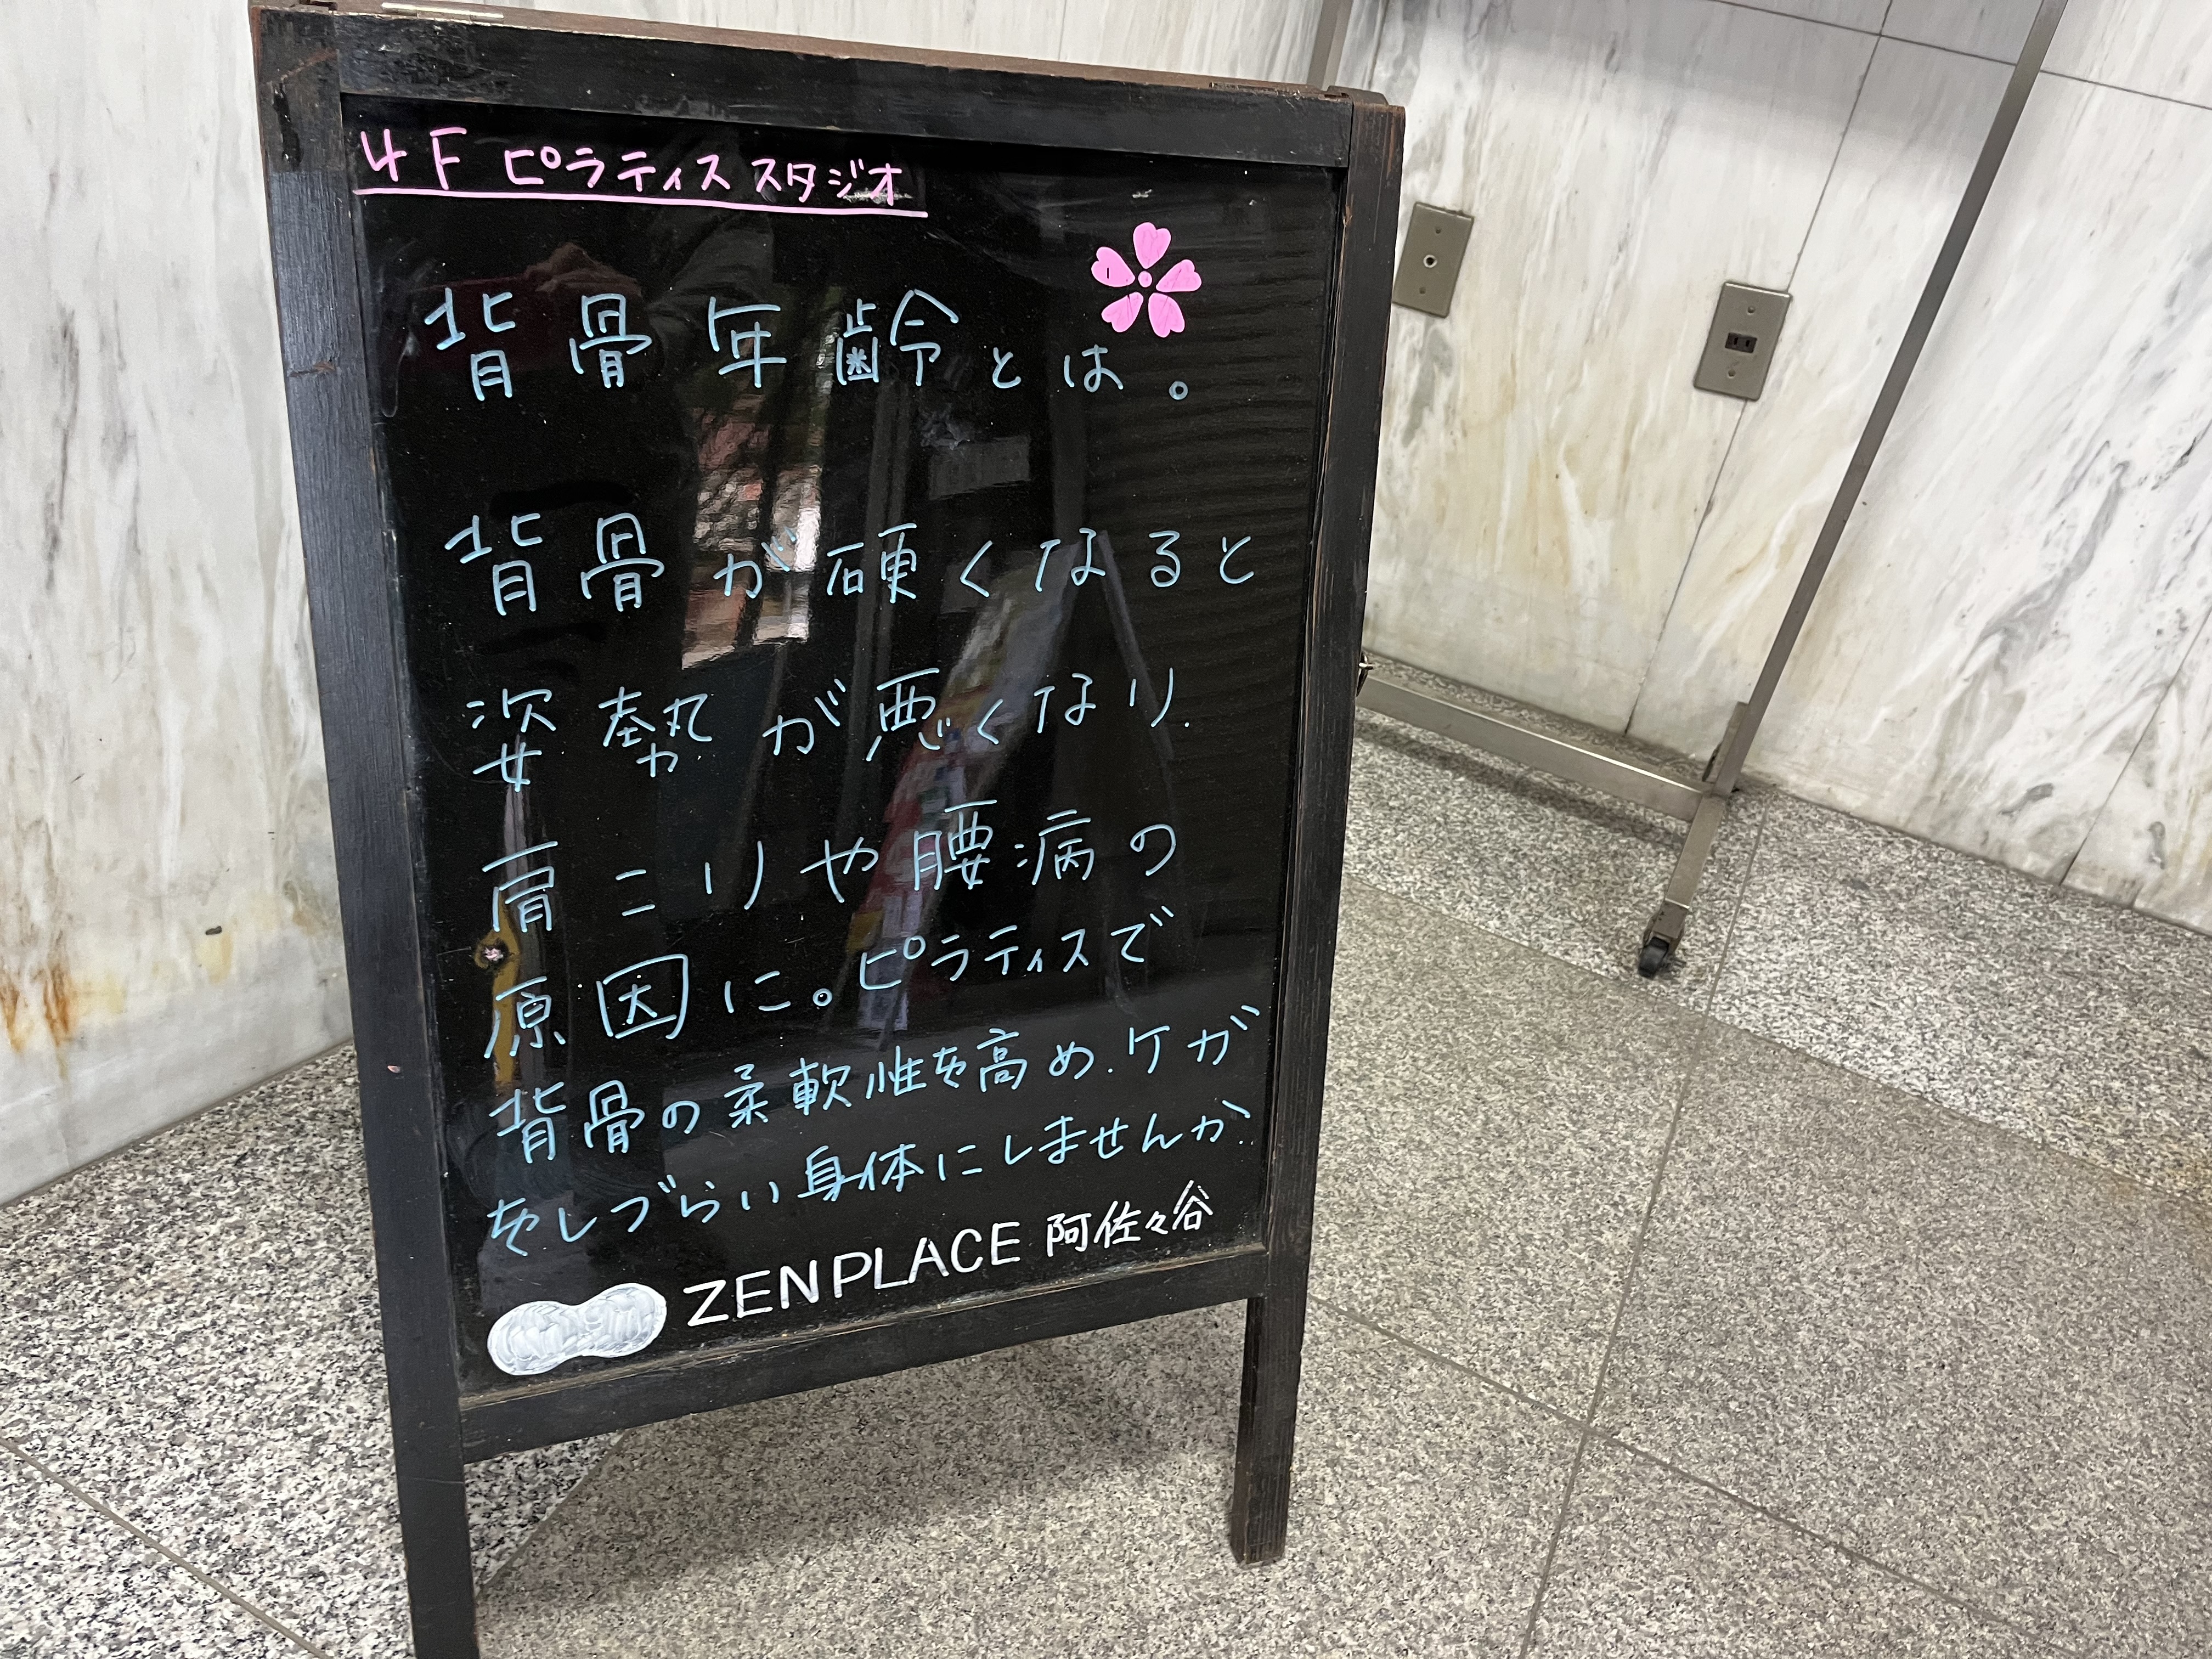 4F ピラティススタジオ
背骨年齢とは。
背骨が硬くなると
姿勢が悪くなり、
肩こりや腰病の
原因に。ピラティスで
背骨の柔軟性を高め、ケガ
をしづらい身体にしませんか
ZENPLACE 阿佐々谷